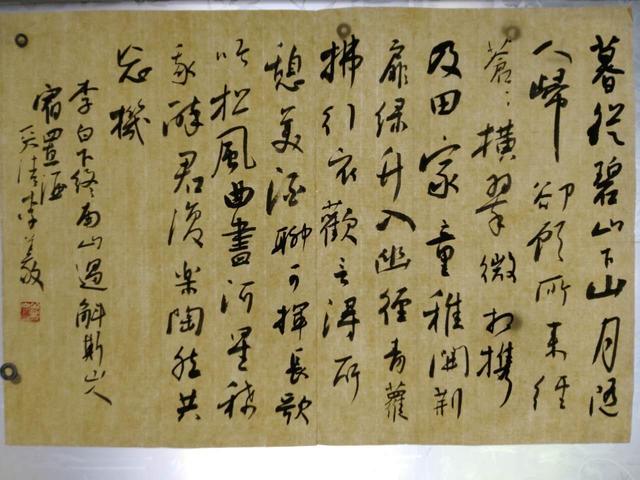 暮從碧山下山月隨
人歸卻顧所來徑
蒼〻橫翠微相攜
及田家童稚開荊
扉綠竹入幽徑青蘿
拂行衣歡言得所
憩美酒聊可揮長歌
吟松風曲盡河星稀
我醉君復樂陶然共
忘機
李白下終南山過斛斯山人
宿置酒